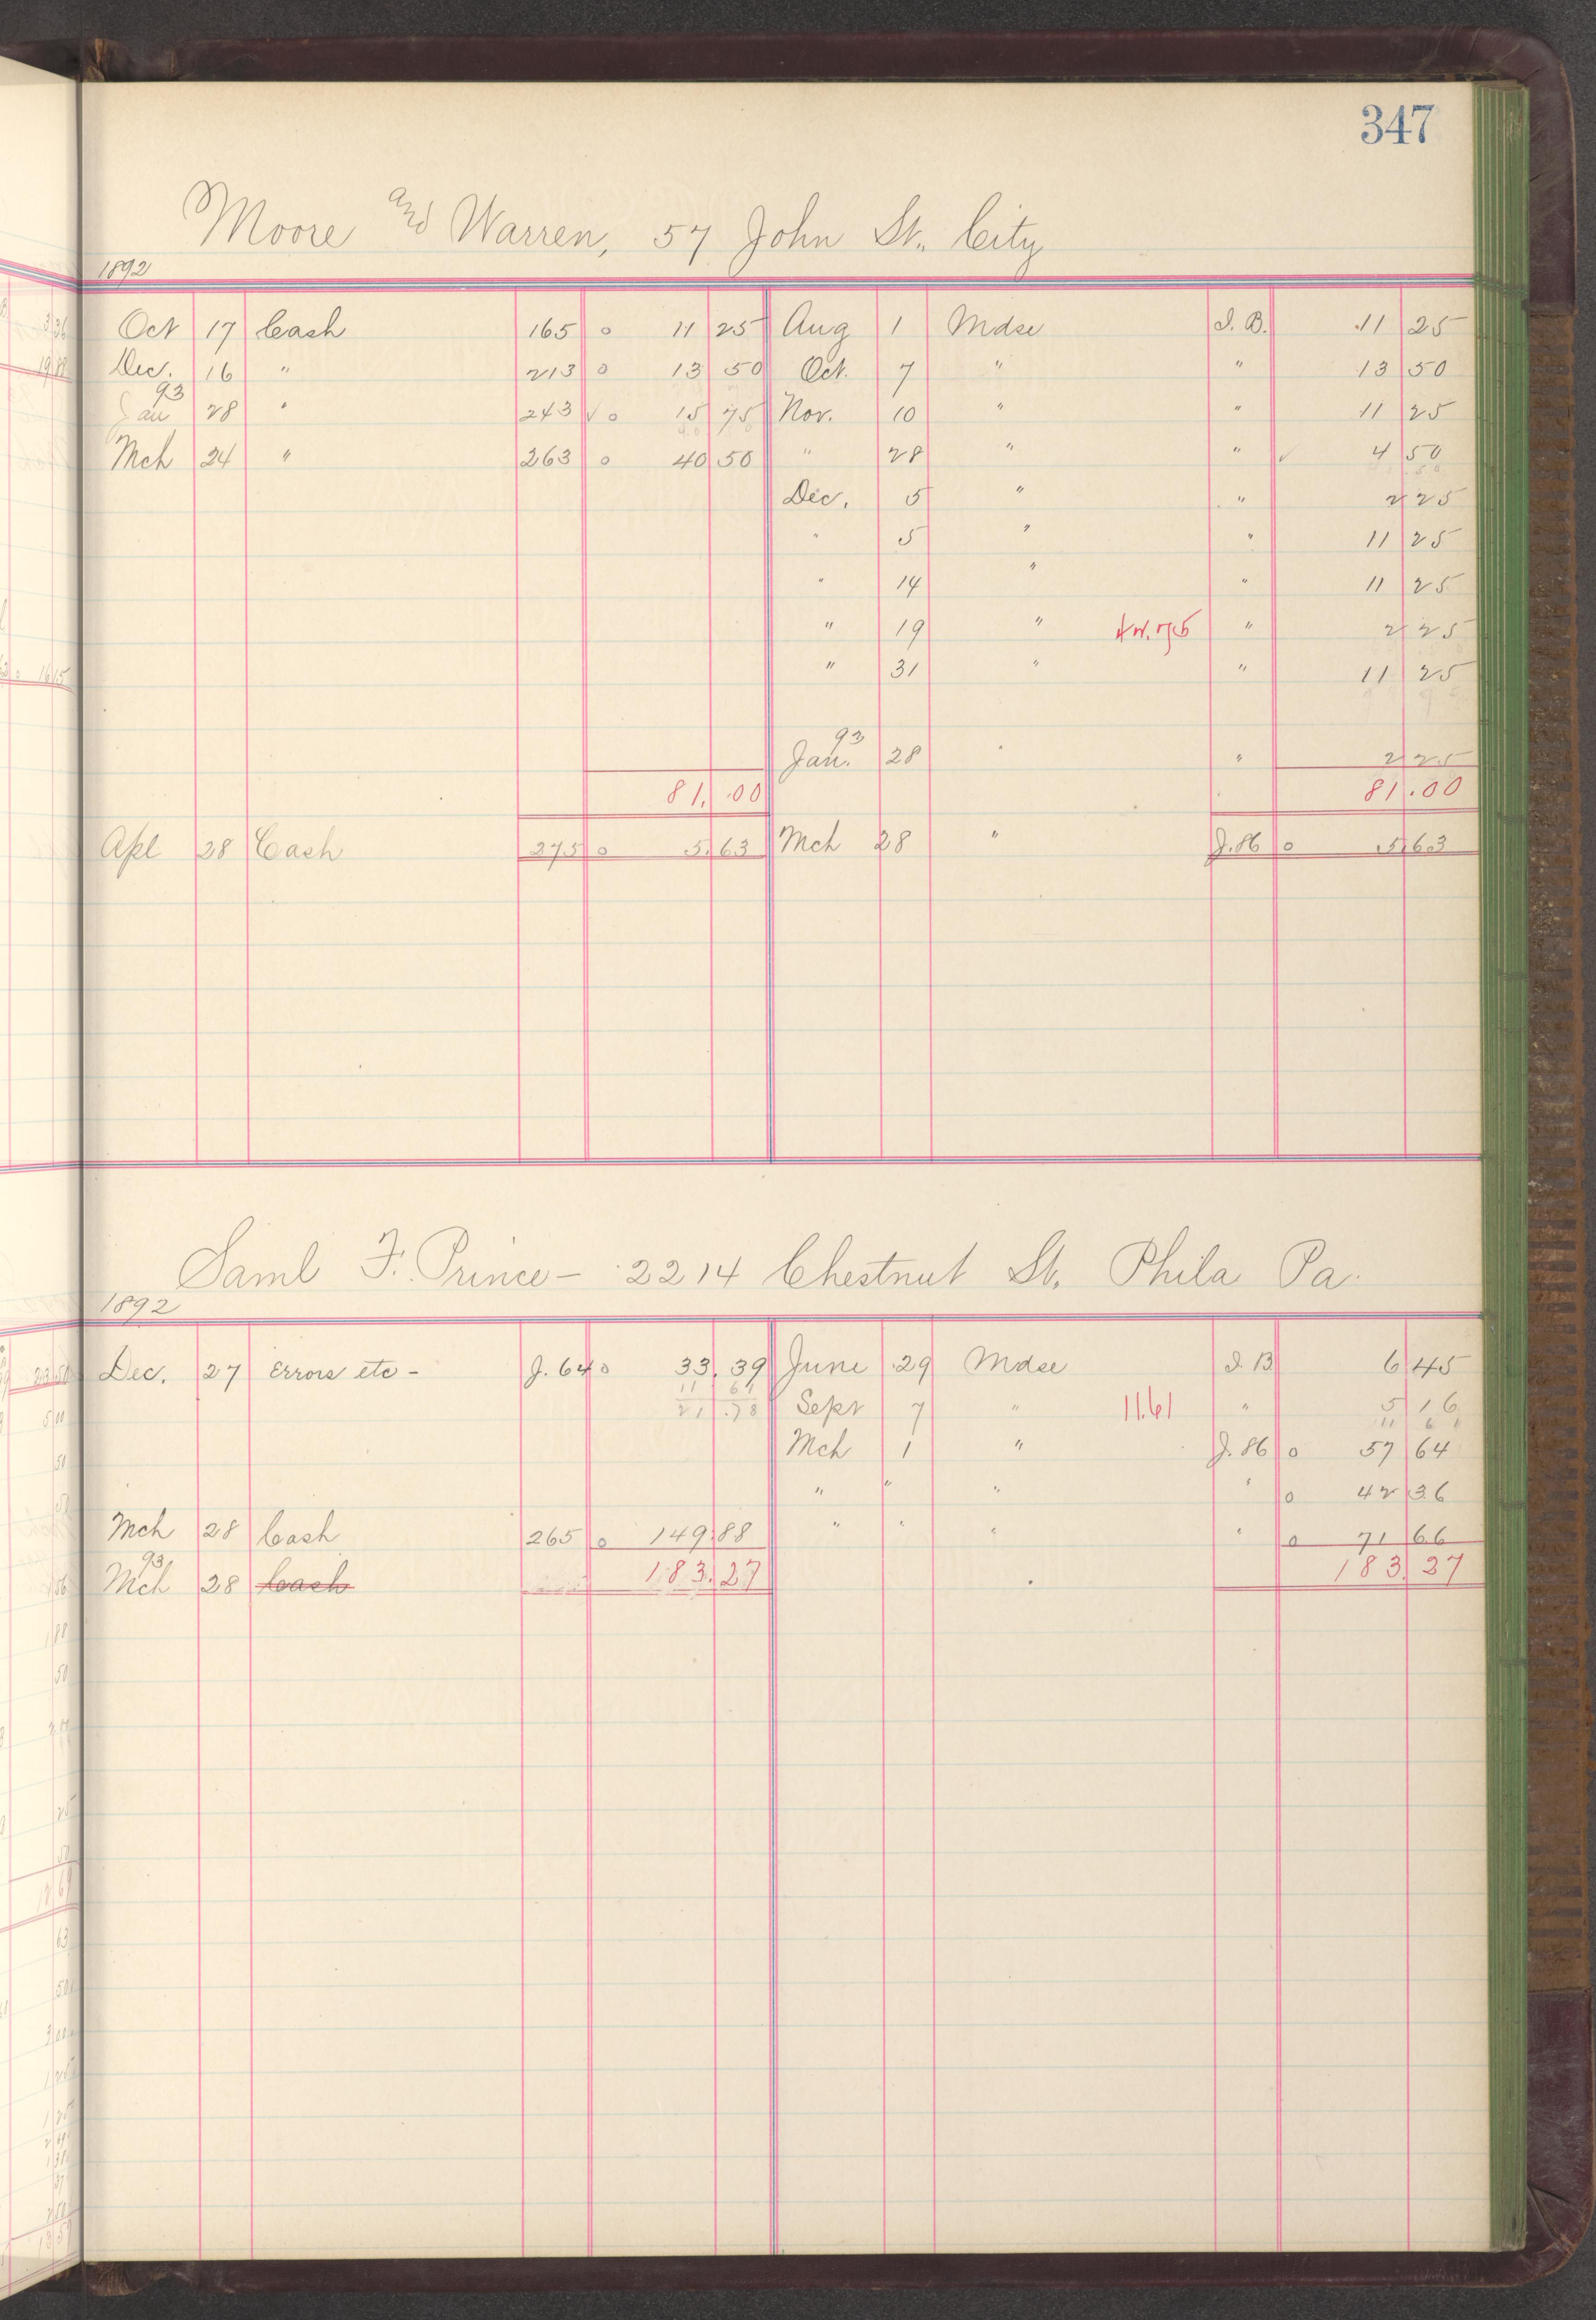 347
Moore and Warren, 57 John St. City
1892
Oct 17 Cash 165 o 11 25 Aug 1 Mdse I. B. 11 25
Dec. 16 " 213 o 13 50 Oct. 7 " " 13 50
93
Jan 28 " 243 √ o 15 75 Nov. 10 " " 11 25
Mch 24 " 263 o 40 50 " 28 " " √ 4 50
Dec. 5 " " 2 25
" 5 " " 11 25
" 14 " " 11 25
" 19 " " 2 25
" 31 " " 11 25
93
Jan. 28 " " 2 25
81.00 81.00
Apl 28 Cash 275 o 5.63 Mch 28 " J. 86 o 5.63
Saml F. Prince - 2214 Chestnut St. Phila Pa.
1892
Dec. 27 Errors etc - J. 64 o 33.39 June 29 Mdse I. B 6 45
11 61
21.78 Sepr 7 " 11.61 " 5 16
11 61
Mch 1 " J. 86 o 57 64
" " " " o 42 36
Mch 28 Cash 265 o 149.88 " " " " o 71 66
93
Mch 28 Cash 183.27 183.27